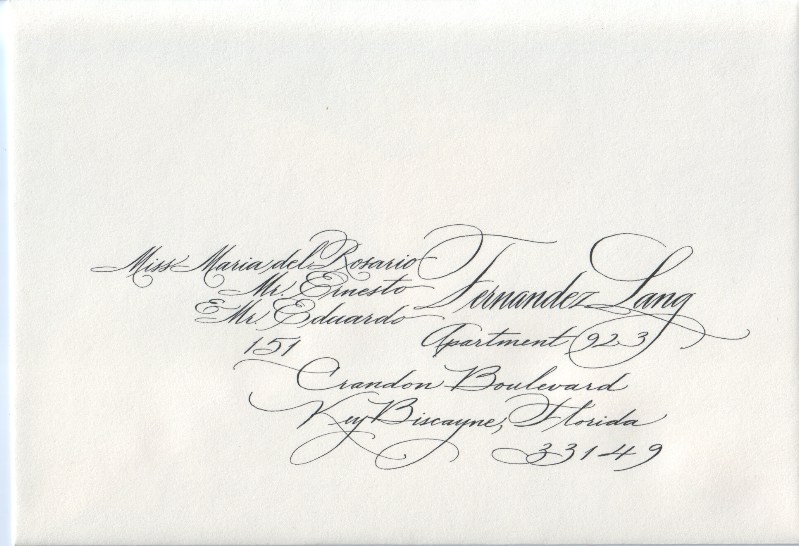 Miss Maria del Rosario
Mr. Ernesto Fernandez Lang
& Mr. Eduardo
Apartment 923
151
Crandon Boulevard
Key Biscayne, Florida
33149